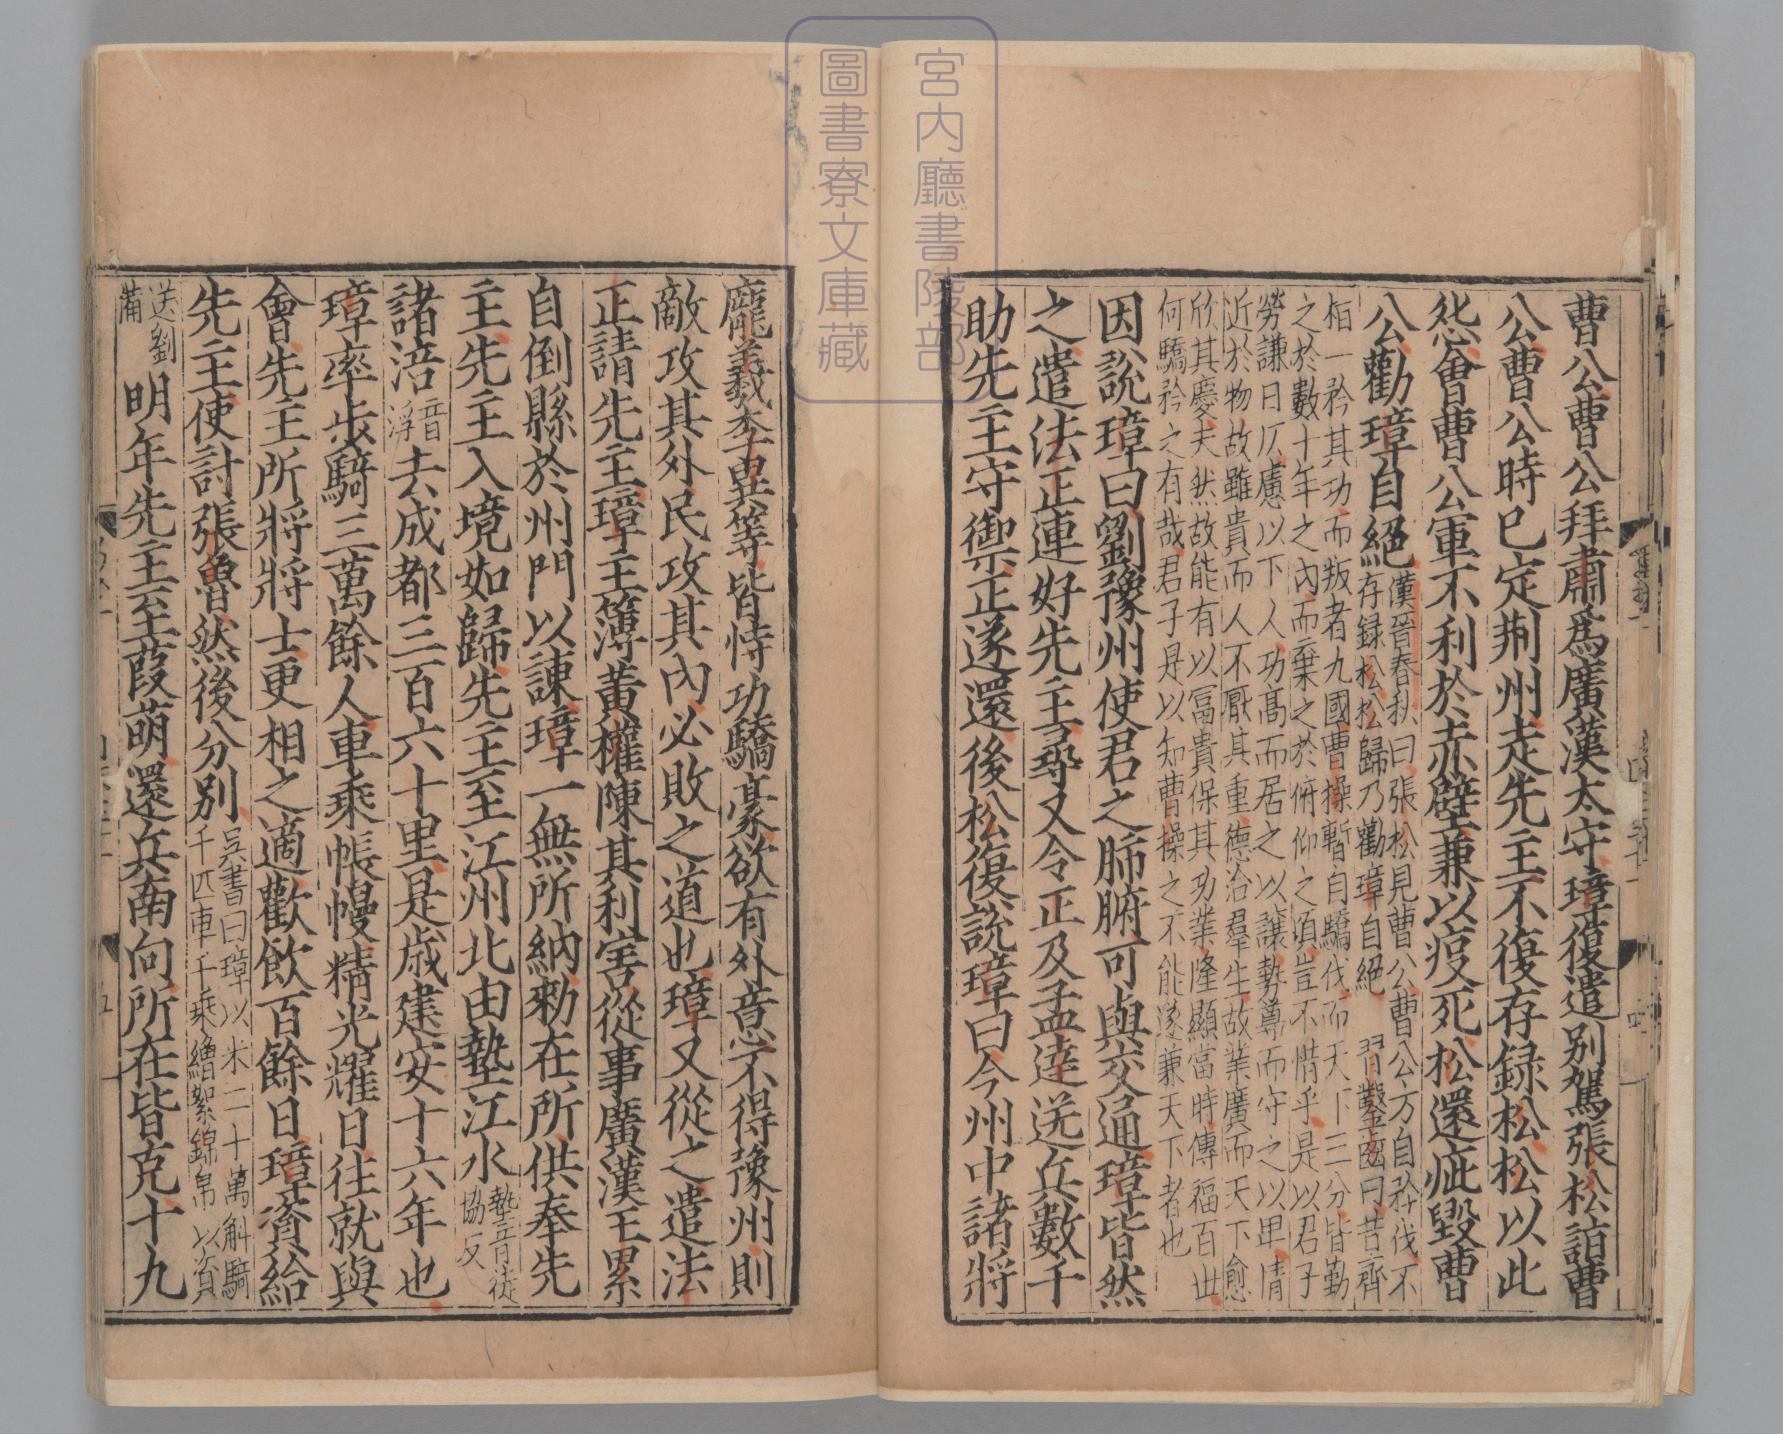 曹公曹公拜肅爲廣漢太守璋復遣別駕張松詣曹
公曹公時已定荆州走先主不復存録松松以此
怨會曹公軍不利於赤壁兼以疫死松還疵毀曹
公勸璋自絕
漢晉春秋曰張松見曹公曹公方自矜伐不
存録松松歸乃勸璋自絕 習鑿齒曰昔齊
桓一矜其功而叛者九國曹操暫自驕伐而天下三分皆勤
之於數十年之內而棄之於俯仰之頃豈不惜乎是以君子
勞謙日仄慮以下人功高而居之以讓勢尊而守之以卑情
近於物故雖貴而人不厭其重德洽羣生故業廣而天下愈
欣其慶夫然故能有以富貴保其功業隆顯當時傳福百世
何驕矜之有哉君子是以知曹操之不能遂兼天下者也
因說璋曰劉豫州使君之肺腑可與交通璋皆然
之遣法正連好先主尋又令正及孟達送兵數千
助先主守禦正遂還後松復說璋曰今州中諸將
龐羲李異等皆恃功驕豪欲有外意不得豫州則
敵攻其外民攻其內必敗之道也璋又從之遣法
正請先主璋主簿黃權陳其利害從事廣漢王累
自倒縣於州門以諫璋一無所納勑在所供奉先
主先主入境如歸先主至江州北由墊江水
墊音徒
協反
諸涪
音
浮
去成都三百六十里是歲建安十六年也
璋率步騎三萬餘人車乘帳幔精光耀日往就與
會先主所將將士更相之適歡飲百餘日璋資給
先主使討張魯然後分別
吳書曰璋以米二十萬斛騎
千匹車千乘繒絮錦帛以資
送劉
備
明年先主至葭萌還兵南向所在皆克十九
宮内廳書陵部
圖書寮文庫藏